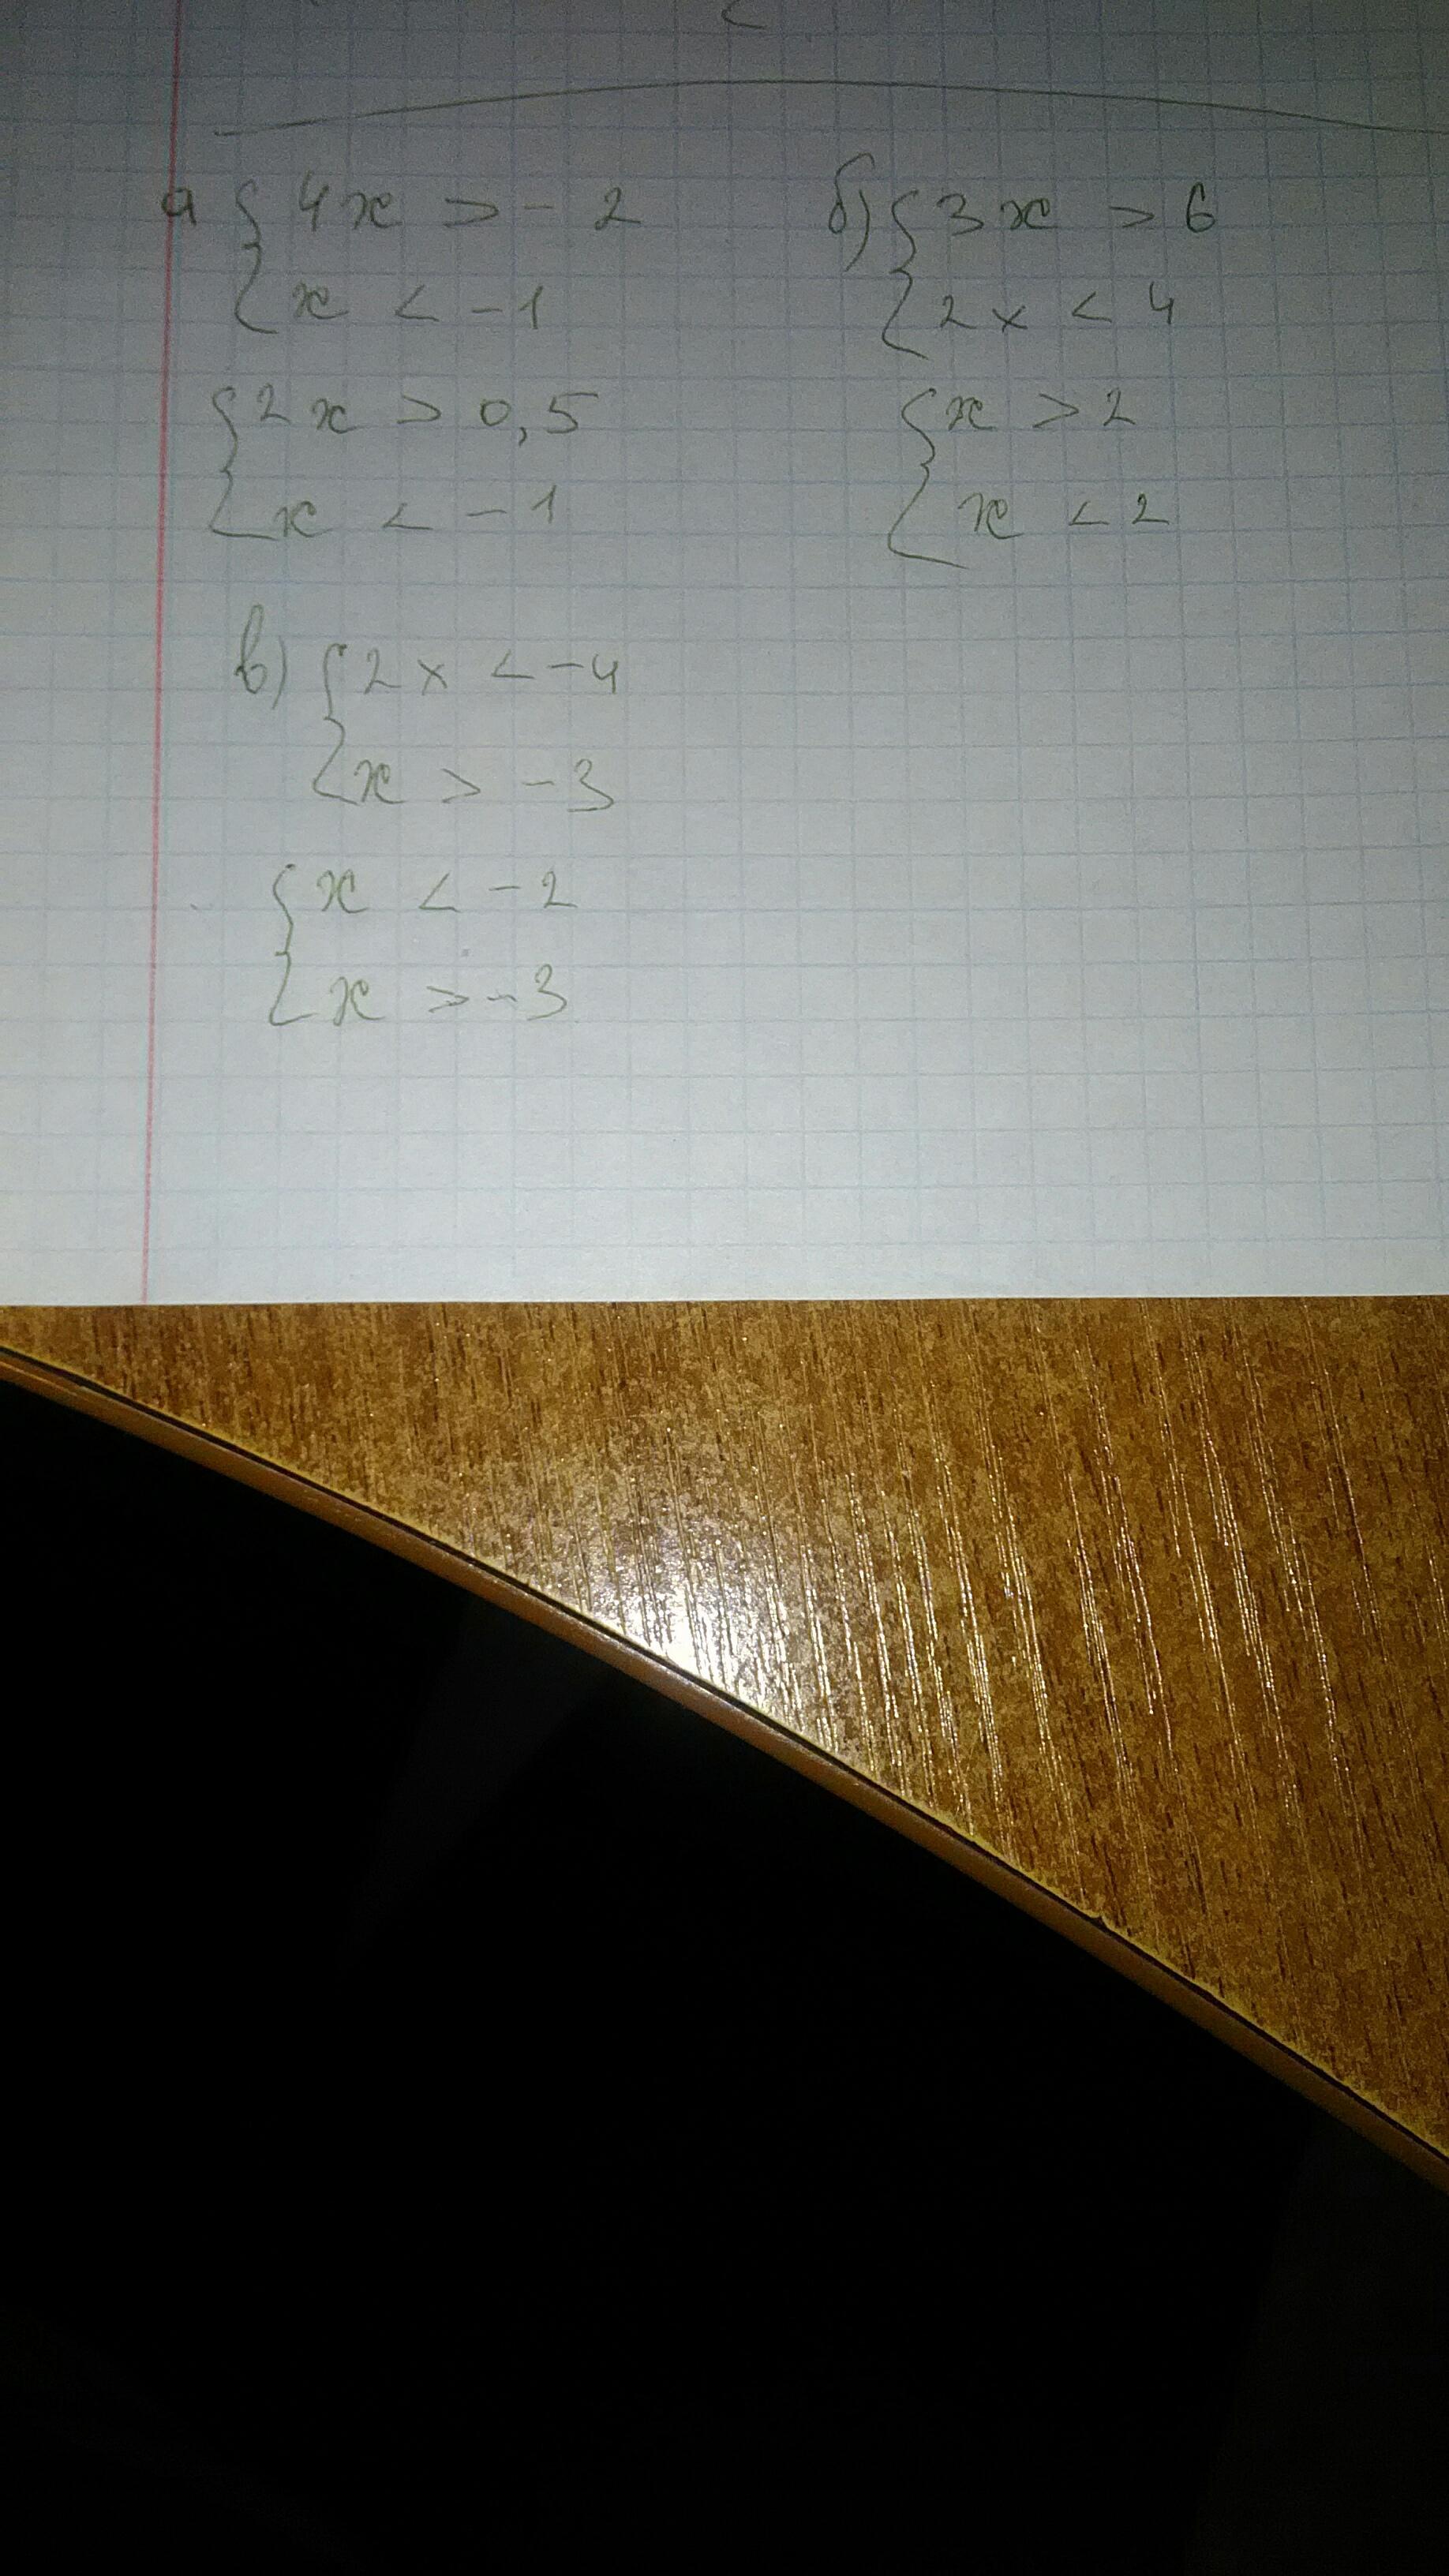 а { 4x > - 2
{ x < - 1
{ 2x > 0,5
{ x < - 1
б) { 3x > 6
{ 2x < 4
{ x > 2
{ x < 2
в) { 2x < - 4
{ x > - 3
{ x < - 2
{ x > - 3